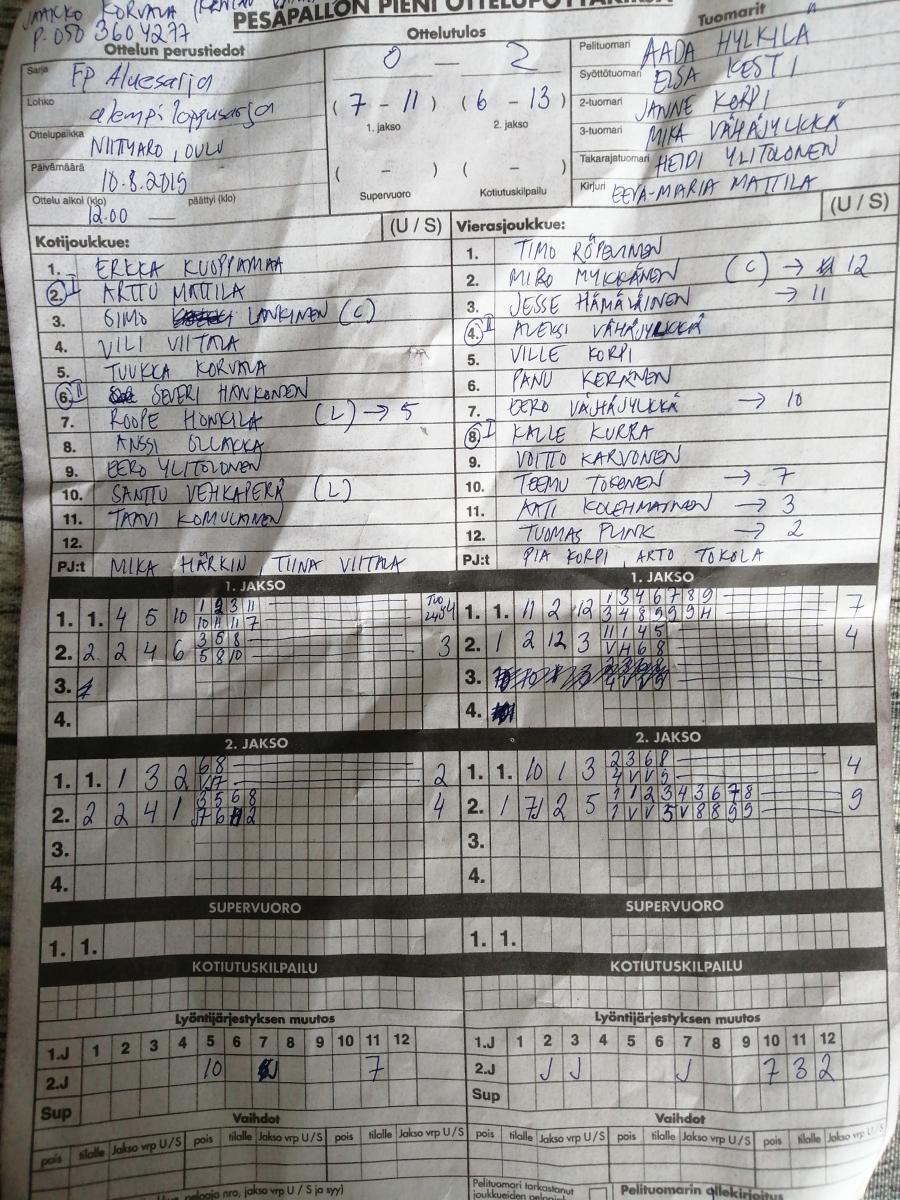 JAAKKO KORVALA
P. 050 3604277
PESÄPALLON PIENI OTTELUPÖYTÄKIRJA
Ottelun perustiedot
Sarja FP Aluesarja
Lohko alempi loppusarja
Ottelupaikka NIITTYARO, OULU
Päivämäärä 10.8.2019
Ottelu alkoi (klo) 12.00 — päättyi (klo)
Ottelutulos
0 — 2
(7 - 11) (6 - 13)
1. jakso 2. jakso
( - ) ( - )
Supervuoro Kotiutuskilpailu
Tuomarit
Pelituomari AADA HYLKILÄ
Syöttötuomari ELSA KESTI
2-tuomari JANNE KORPI
3-tuomari MIKA VÄHÄJYLKKÄ
Takarajatuomari HEIDI YLITOLONEN
Kirjuri EEVA-MARIA MATTILA
Kotijoukkue: (U / S)
1. ERKKA KUOPPAMAA
2. I ARTTU MATTILA
3. SIMO LANKINEN (C)
4. VILI VIITALA
5. TUUKKA KORVALA
6. II SEVERI HANKONEN
7. ROOPE HONKILA (L) → 5
8. ANSSI OLLAKKA
9. EERO YLITOLONEN
10. SANTTU VEHKAPERÄ (L)
11. TAAVI KOMULAINEN
12.
PJ:t MIKA HÄRKIN, TIINA VIITALA
Vierasjoukkue: (U / S)
1. TIMO RÖPELINEN
2. MIRO MYKKÄNEN (C) → 12
3. JESSE HÄMÄLÄINEN → 11
4. II ALEKSI VÄHÄJYLKKÄ
5. VILLE KORPI
6. PANU KERÄNEN
7. EERO VÄHÄJYLKKÄ → 10
8. I KALLE KURRA
9. VOITTO KARVONEN
10. TEEMU TORONEN → 7
11. AATI KOLEHMAINEN → 3
12. TUOMAS PLINK → 2
PJ:t PIA KORPI, ARTO TOKOLA
1. JAKSO
1. 1. 4 5 10 1 2 3 11
10 11 11 7
2. 2 2 4 6 3 5 8 3
5 8 10
3.
4.
1. JAKSO
1. 1. 11 2 12 1 3 4 6 7 8 9 7
3 4 8 9 9 9 H
2. 1 2 12 3 11 1 4 5 4
V H 6 8
3.
4.
2. JAKSO
1. 1. 1 3 2 6 8 2
V 7
2. 2 2 4 1 3 5 6 8 4
3.
4.
2. JAKSO
1. 1. 10 1 3 2 3 6 8 4
4 V V 9
2. 1 7J 2 5 1 1 2 3 4 3 6 7 8 9
1 V V 5 V 8 8 9 9
3.
4.
SUPERVUORO
1. 1.
SUPERVUORO
1. 1.
KOTIUTUSKILPAILU
KOTIUTUSKILPAILU
Lyöntijärjestyksen muutos
1.J 1 2 3 4 5 6 7 8 9 10 11 12
2.J 10 J 7
Sup
Lyöntijärjestyksen muutos
1.J 1 2 3 4 5 6 7 8 9 10 11 12
2.J J J J 7 3 2
Sup
Vaihdot
pois tilalle Jakso vrp U / S pois tilalle Jakso vrp U / S pois tilalle Jakso vrp U / S
Vaihdot
pois tilalle Jakso vrp U / S pois tilalle Jakso vrp U / S pois tilalle Jakso vrp U / S
pelaaja nro, jakso vrp U / S ja syy)
Pelituomari tarkastanut
joukkueiden
Pelituomarin allekirjoitus